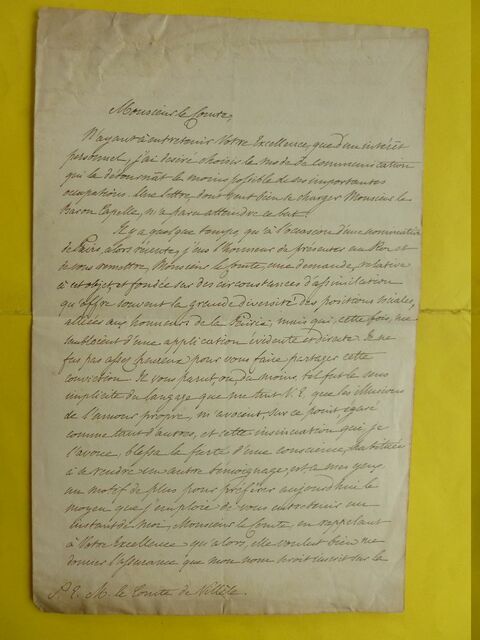 Monsieur le Comte,
N'ayant à entretenir Votre Excellence, que d'un intérêt
personnel, j'ai désiré choisir le mode de communication
qui la détournât le moins possible de ses importantes
occupations. Une lettre, dont veut bien se charger Monsieur le
Baron Capelle, m'a paru atteindre ce but.
Il y a quelque temps, qu'à l'occasion d'une nomination
de Pairs, alors récente, j'eus l'honneur de présenter au Roi et
de vous remettre, Monsieur le Comte, une demande, relative
à cet objet et fondée sur des circonstances d'assimilation
qu'offre souvent la grande diversité des positions sociales,
allices aux honneurs de la Pairie, mais qui, cette fois, me
sembloient d'une application évidente et directe. Je ne
fus pas assez heureux pour vous faire partager cette
conviction. Il vous parut ou du moins, tel fut le sens
implicite du langage que me tint V. E. que les illusions
de l'amour propre, m'avoient, sur ce point égaré
comme tant d'autres, et cette insinuation qui je
l'avoue, blessa la fierté d'une conscience, habituée
à se rendre un autre témoignage, est à mes yeux,
un motif de plus pour préférer aujourd'hui le
moyen que j'emploie de vous entretenir un
instant de moi, Monsieur le Comte en rappelant
à Votre Excellence qu'alors, elle voulut bien me
donner l'assurance que mon nom seroit inscrit sur la
S. E. M. le Comte de Villèle.